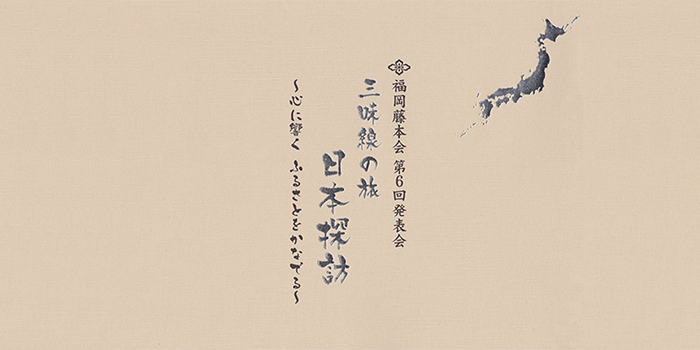 福岡藤本会 第6回発表会
三味線の旅
日本探訪
～心に響く ふるさとをかなでる～